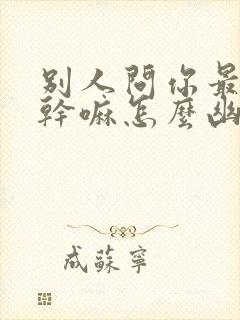 別人問你最
幹嘛怎麼幽
成蘇寧